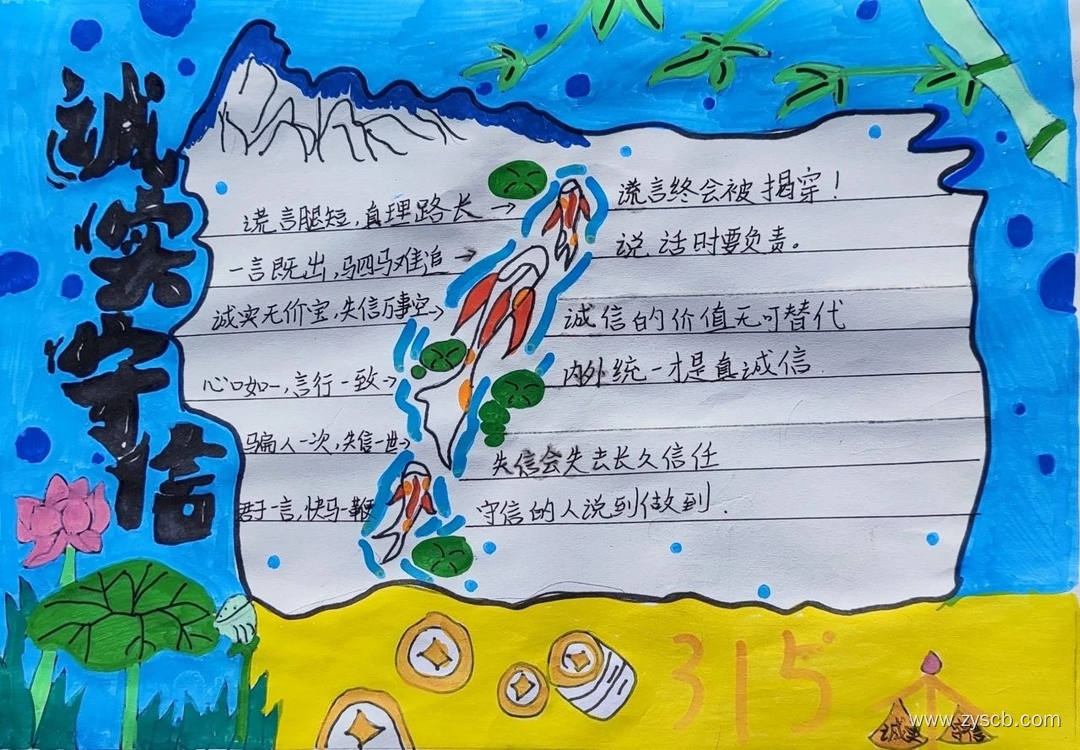 诚实守信
谎言腿短，真理路长→ 谎言终会被揭穿！
一言既出，驷马难追→ 说话时要负责。
诚实无价宝，失信万事空→ 诚信的价值无可替代
心口如一，言行一致→ 内外统一才是真诚信
骗人一次，失信一世→ 失信会失去长久信任
君子一言，快马一鞭 守信的人说到做到.
315
诚实 守信
www.zyscb.com